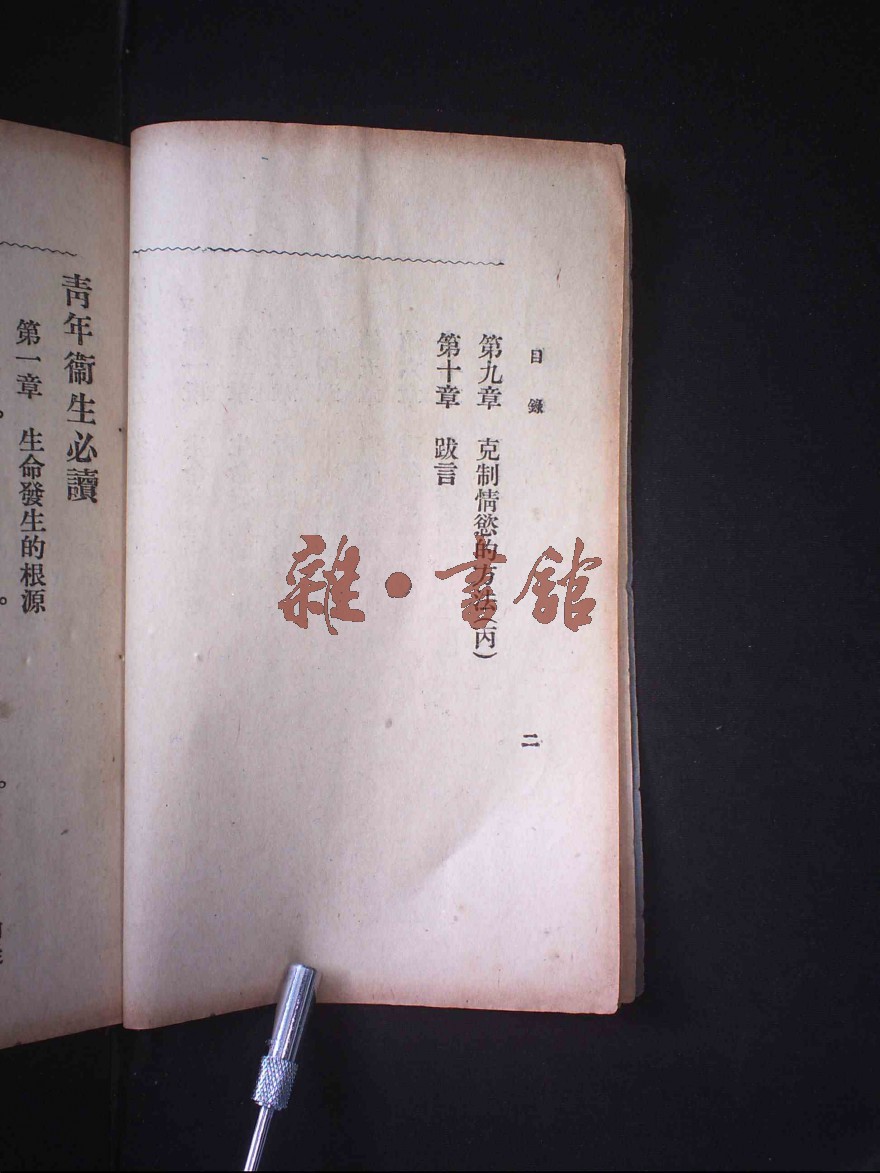 目錄
二
第九章　克制情慾的方法(丙)
第十章　跋言
雜·書館
靑年衞生必讀
第一章　生命發生的根源